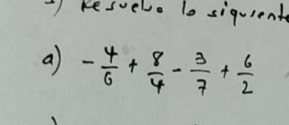 Resuelva lo siguiente
a) - 4/6 + 8/4 - 3/7 + 6/2